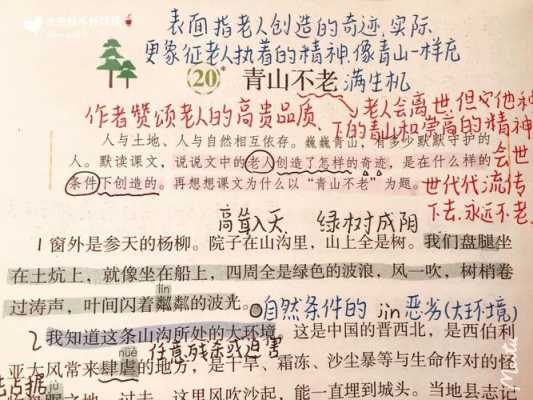 表面指老人创造的奇迹,实际
更象征老人执着的精神,像青山一样充
满生机
20 青山不老
作者赞颂老人的高贵品质、
老人会离世,但它他种
下的青山和崇高的精神
会世
世代代流传
下去,永远不老
人与土地、人与自然相互依存。巍巍青山,有多少默默守护的
人。默读课文,说说文中的老人创造了怎样的奇迹,是在什么样的
条件下创造的。再想想课文为什么以“青山不老”为题。
高耸入天 绿树成阴
1 窗外是参天的杨柳。院子在山沟里,山上全是树。我们盘腿坐
在土炕上,就像坐在船上,四周全是绿色的波浪,风一吹,树梢卷
lín
过涛声,叶间闪着粼粼的波光。
自然条件的 jìn 恶劣(大环境)
2 我知道这条山沟所处的大环境。这是中国的晋西北,是西伯利
nüè
任意残杀或迫害
亚大风常来肆虐的地方,是干旱、霜冻、沙尘暴等与生命作对的怪
过去,这里风吹沙起,能一直埋到城头。当地县志记